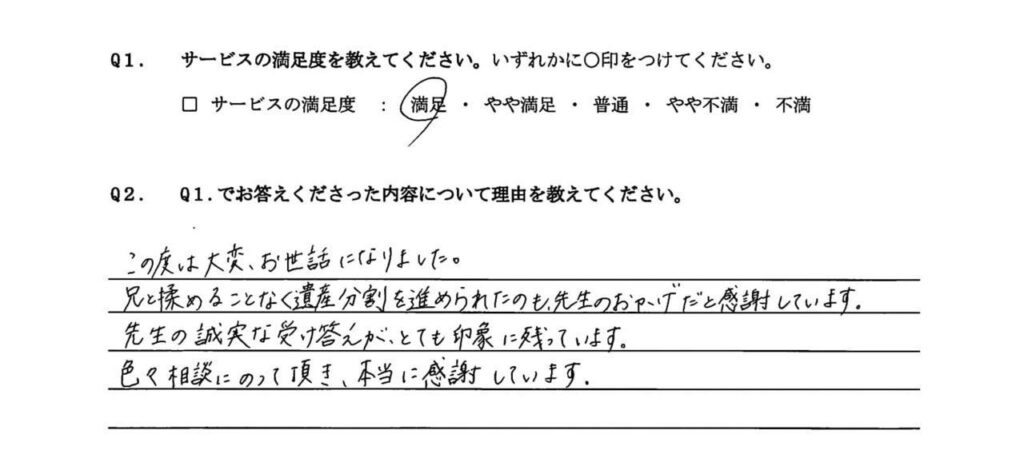 Q1. サービスの満足度を教えてください。いずれかに〇印をつけてください。
□ サービスの満足度 : 満足 ・ やや満足 ・ 普通 ・ やや不満 ・ 不満
Q2. Q1.でお答えくださった内容について理由を教えてください。
この度は大変、お世話になりました。
兄と揉めることなく遺産分割を進められたのも、先生のおかげだと感謝しています。
先生の誠実な受け答えが、とても印象に残っています。
色々相談にのって頂き、本当に感謝しています。